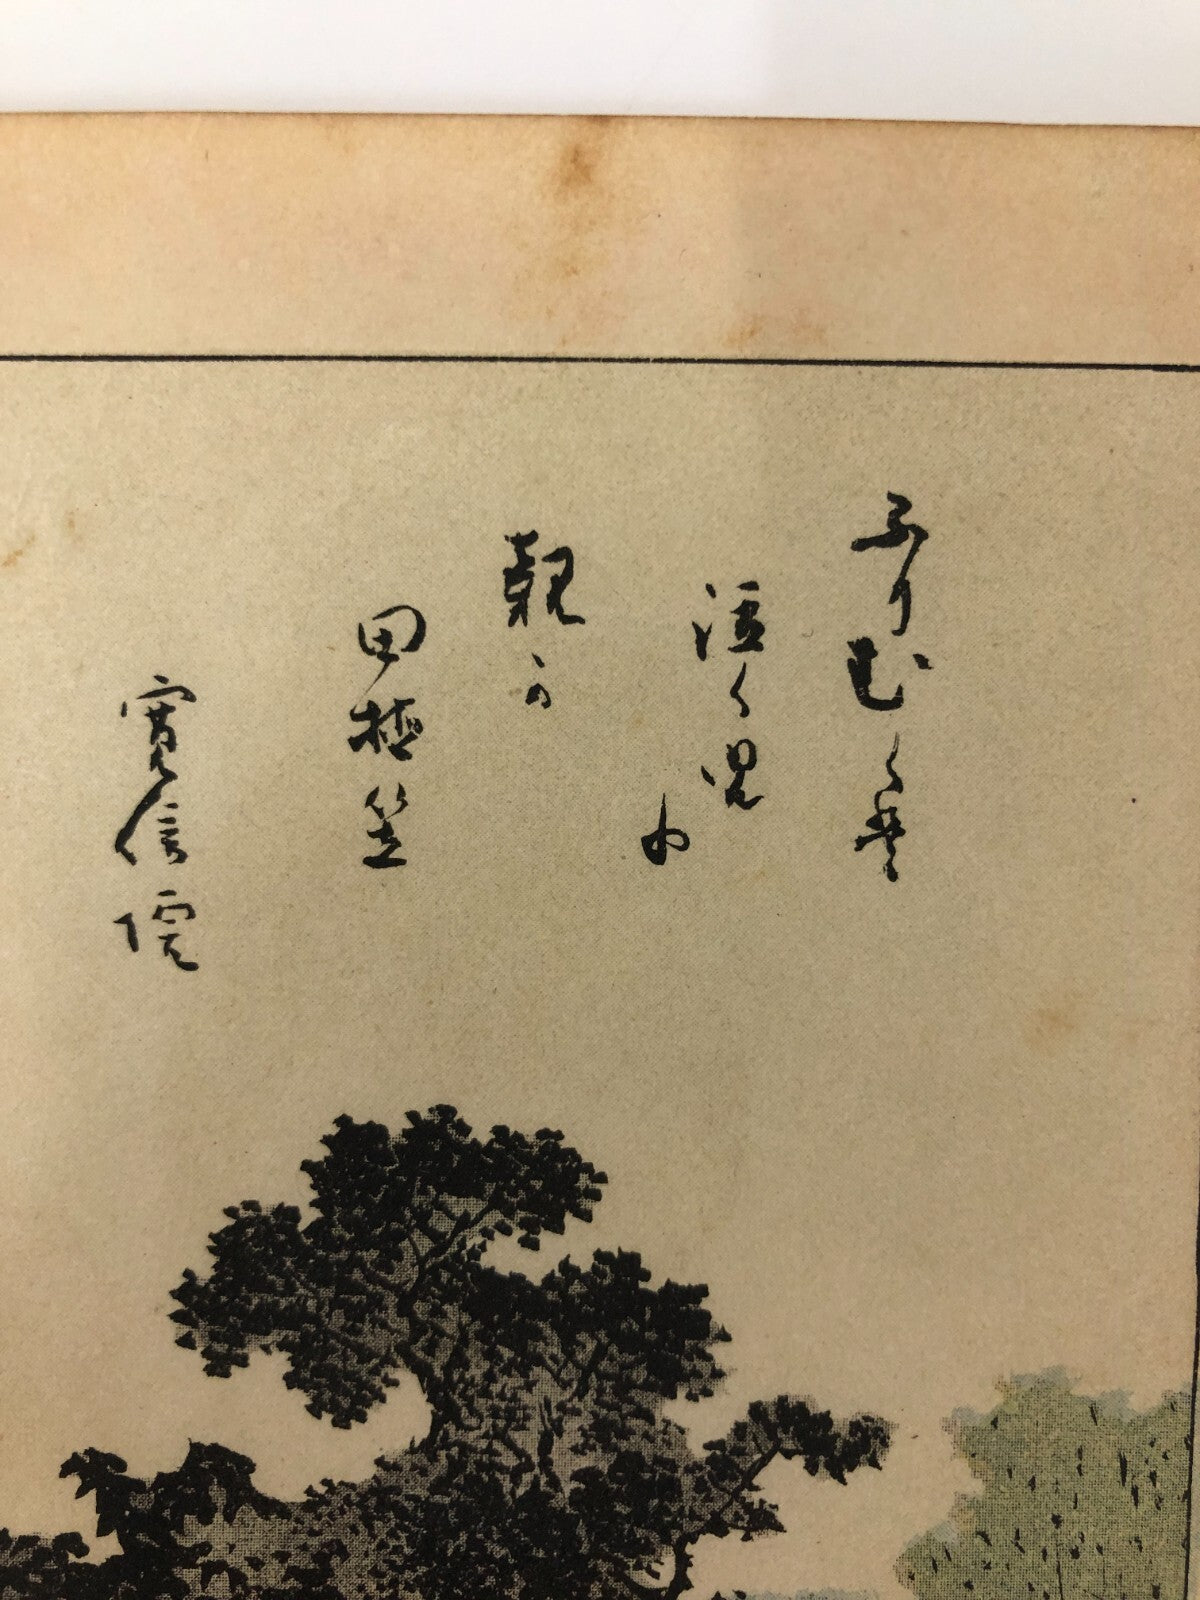 ふりむくや
泣く児に
親の
田植笠
寛信院